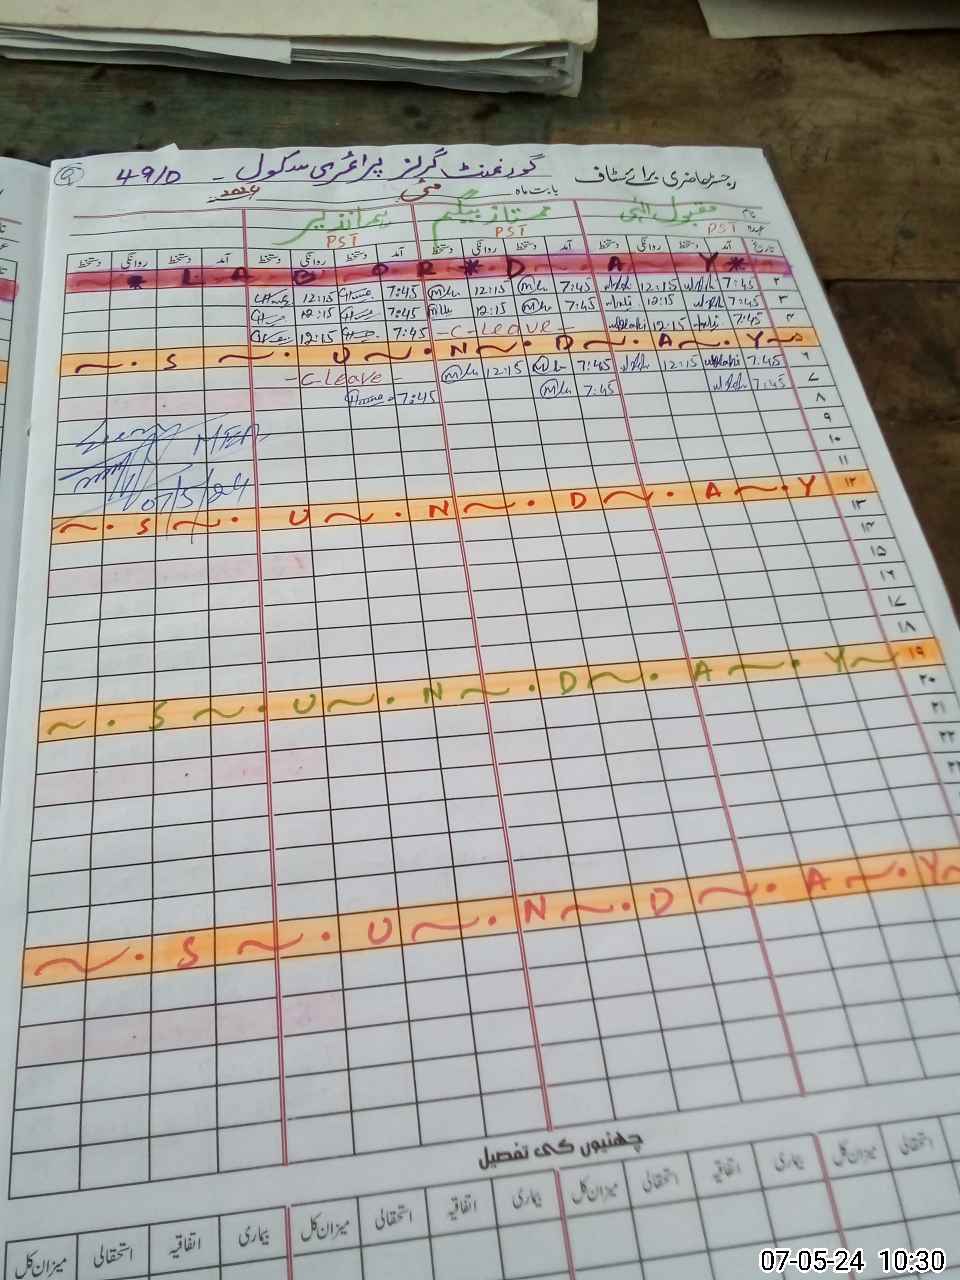 رجسٹر حاضری برائے سٹاف گورنمنٹ گرلز پرائمری سکول - 49/D 9
بابت ماہ مئی 2024
نام مقبول الٰہی ممتاز بیگم
عہدہ PST PST PST
تاریخ آمد دستخط روانگی دستخط آمد دستخط روانگی دستخط آمد دستخط روانگی دستخط آمد دستخط روانگی دستخط
* L A B O R * D A Y *
۲ 7:45 12:15 7:45 12:15 7:45 12:15
۳ 7:45 12:15 7:45 12:15 7:45 12:15
۴ 7:45 12:15 - C-Leave - 7:45 12:15
~ . S ~ . U ~ . N ~ . D ~ . A ~ . Y ~
۶ 7:45 12:15 7:45 12:15 - C-Leave -
۷ 7:45 7:45 7:45
۸
۹
۱۰
۱۱
MEA
07/5/24
~ . S ~ . U ~ . N ~ . D ~ . A ~ . Y ۱۲
۱۳
۱۴
۱۵
۱۶
۱۷
۱۸
~ . S ~ . U ~ . N ~ . D ~ . A ~ . Y ~ ۱۹
۲۰
۲۱
۲۲
~ . S ~ . U ~ . N ~ . D ~ . A ~ . Y ~
چھٹیوں کی تفصیل
استحقاقی میزان کل بیماری اتفاقیہ استحقاقی میزان کل بیماری اتفاقیہ استحقاقی میزان کل بیماری اتفاقیہ استحقاقی میزان کل
07-05-24 10:30